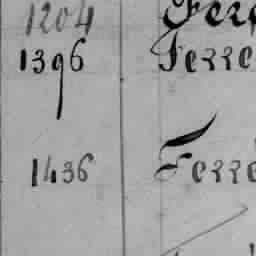 1204 Fere
1396 Ferre
1436 Ferre